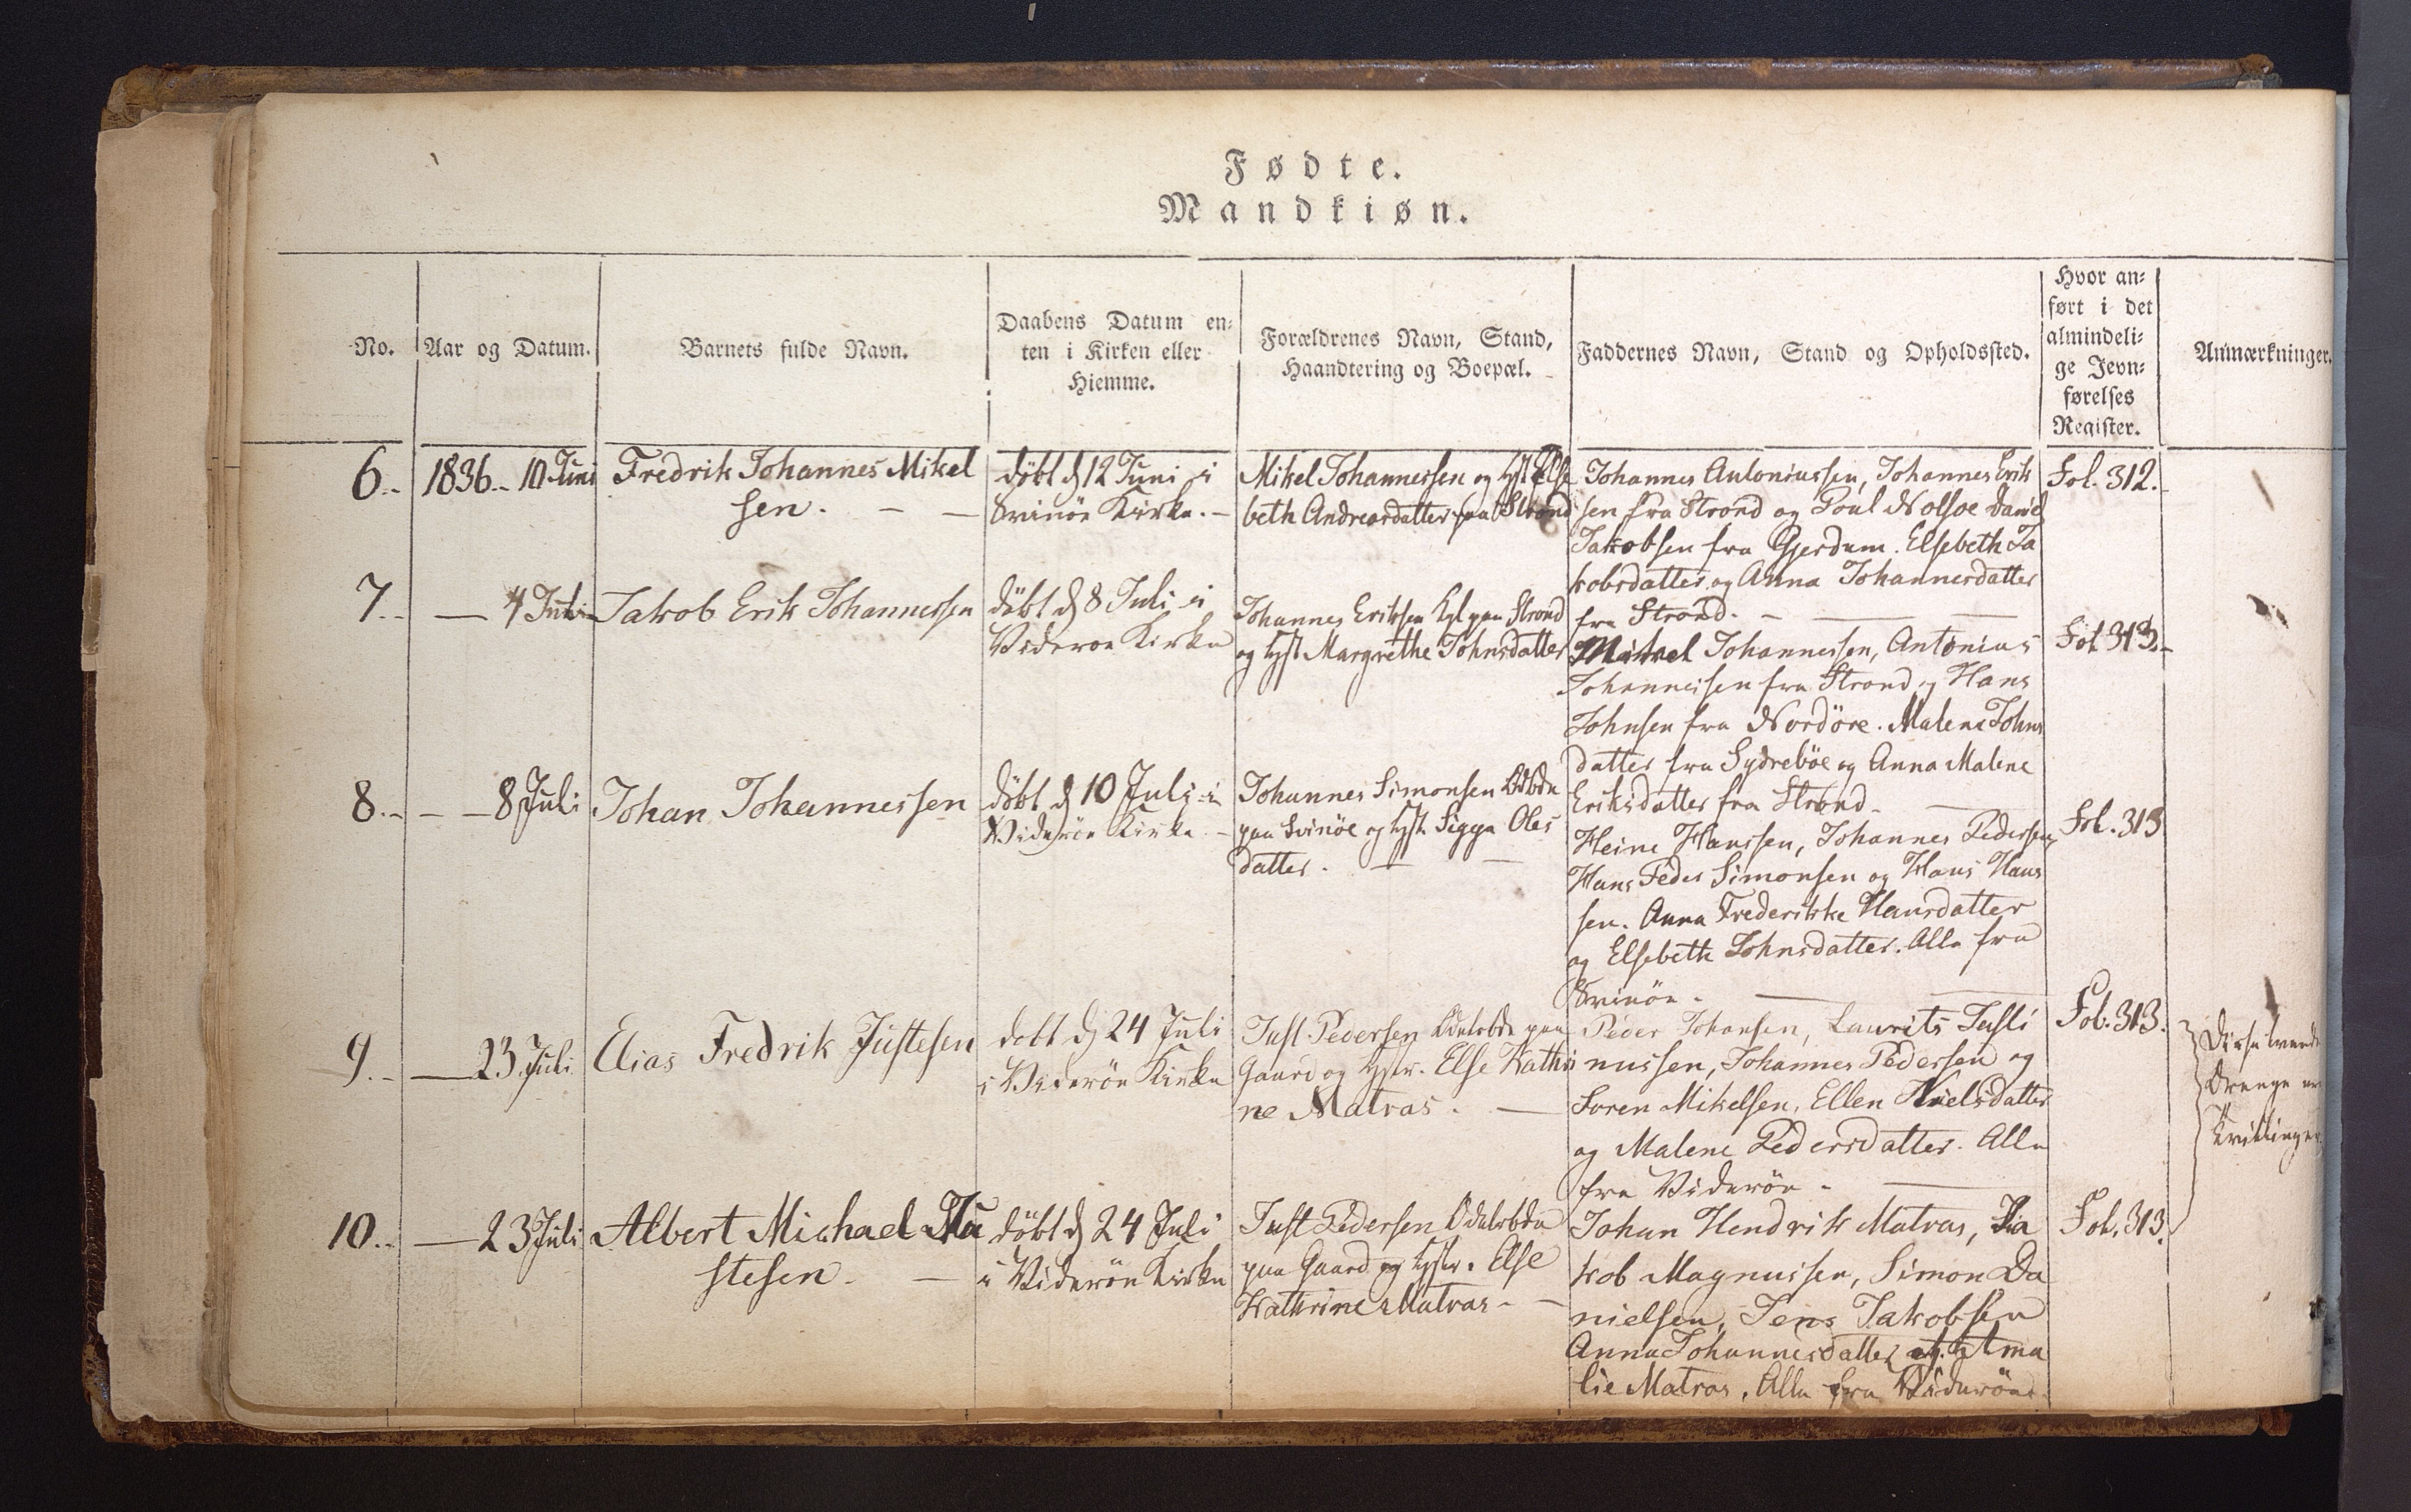 Fødte.
Mandkiøn.
No.
Aar og Datum.
Barnets fulde Navn.
Daabens Datum en-
ten i Kirken eller
Hiemme.
Forældrenes Navn, Stand,
Haandtering og Boepæl.
Faddernes Navn, Stand og Opholdssted.
Hvor an-
ført i det
almindeli-
ge Jevn-
førelses
Register.
Anmærkninger.
6..
1836.. 10 Juni
Fredrik Johannes Mikel
sen. - -
döbt d 12 Juni i
Svinöe Kirke. -
Mikel Johannessen og Hst Else
beth Andreasdatter paa Strond
Johannes Antoniussen, Johannes Erik
sen fra Strond og Poul Nolsoe Daniel
Jakobsen fra Gjerdum. Elsebeth Ja
kobsdatter og Anna Johannesdatter
fra Strond. -
Fol. 312.
7..
— 4 Juli
Jakob Erik Johannessen
döbt d 8 Juli i
Videroe Kirke
Johannes Eriksen paa Strond
og Hst Margrethe Johnsdatter
Mikkel Johannessen, Antonius
Johannessen fra Strond og Hans
Johnsen fra Nordöre. Malene Johns
datter fra Sydreböe og Anna Malene
Eriksdatter fra Strond.
Fol 313.
8..
— 8 Juli
Johan Johannessen
döbt d 10 Juli i
Videröe Kirke. -
Johannes Simonsen
paa Svinöe og Hst Sigga Oles
datter. —
Heine Hanssen, Johannes Pedersen
Hans Peder Simonsen og Hans Hans
sen. Anna Frederikke Hansdatter
og Elsebeth Johnsdatter. Alle fra
Svinöe.
Fol. 313
9..
— 23 Juli
Elias Fredrik Justesen
dobt d 24 Juli
i Videröe Kirke
Just Pedersen paa
Gaard og Hstr. Else Kathri
ne Matras. —
Peder Johansen, Laurits Justi
nussen, Johannes Pedersen og
Soren Mikelsen, Ellen Nielsdatter
og Malene Pedersdatter. Alle
fra Videröe -
Fol. 313.
Disse tvende
Drenge ere
Tvillinger.
10..
— 23 Juli
Albert Michael Ju
stesen. —
döbt d 24 Juli
i Videröe Kirke
Just Pedersen
paa Gaard og Hstr. Else
Kathrine Matras -
Johan Hendrik Matras, Ja
kob Magnussen, Simon Da
nielsen, Jens Jakobsen
Anna Johannesdatter og Ama
lie Matras. Alle fra Videröe.
Fol. 313.